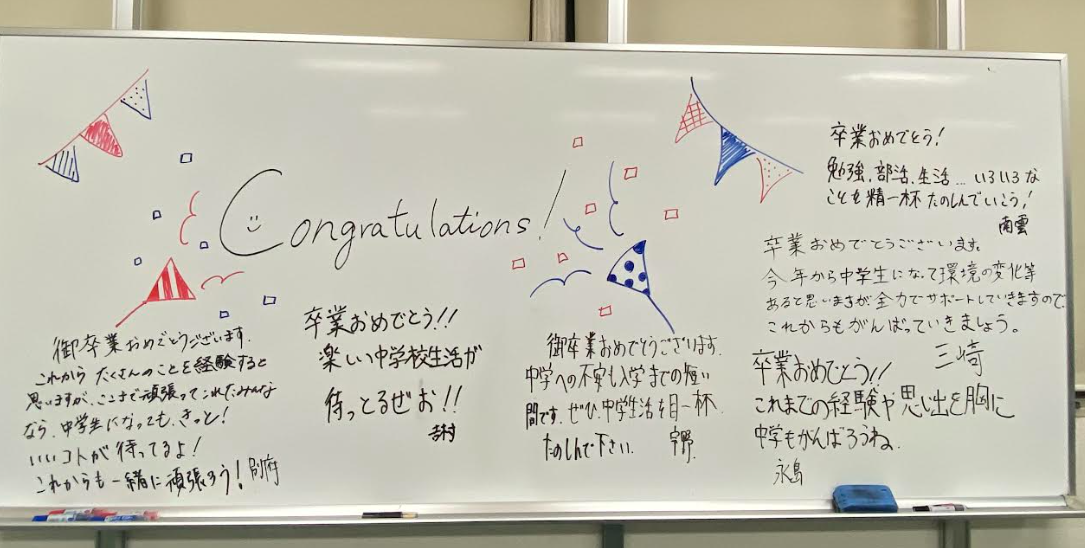 Congratulations!
御卒業おめでとうございます.
これから たくさんのことを経験すると
思いますが、ここまで頑張ってこれたみんな
なら、中学生になっても、きっと!
いいコトが待ってるよ!
これからも一緒に頑張ろう! 別府
卒業おめでとう!!
楽しい中学校生活が
待っとるぜぉ!!
吉村
御卒業おめでとうございます.
中学への不安も入学までの短い
間です。ぜひ、中学生活を目一杯
たのしんで下さい. 宇野.
卒業おめでとう!
勉強、部活、生活...いろいろな
ことを精一杯たのしんでいこう!
南雲
卒業おめでとうございます。
今年から中学生になって環境の変化等
あると思いますが、全力でサポートしていきますので
これからもがんばっていきましょう。
三崎
卒業おめでとう!!
これまでの経験や思い出を胸に
中学もがんばろうね.
永島